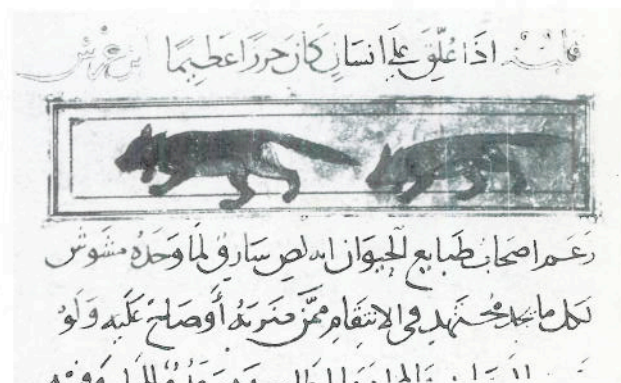 اذا عُلِّقَ على انسانٍ كان حرزا عظيمًا ابن عرس
زعم اصحاب طبايع الحيوان انه لص سارق لما وجده مشوش
لكل ما يجد مجتهد في الانتقام ممن ضربه أو صاح عليه ولو